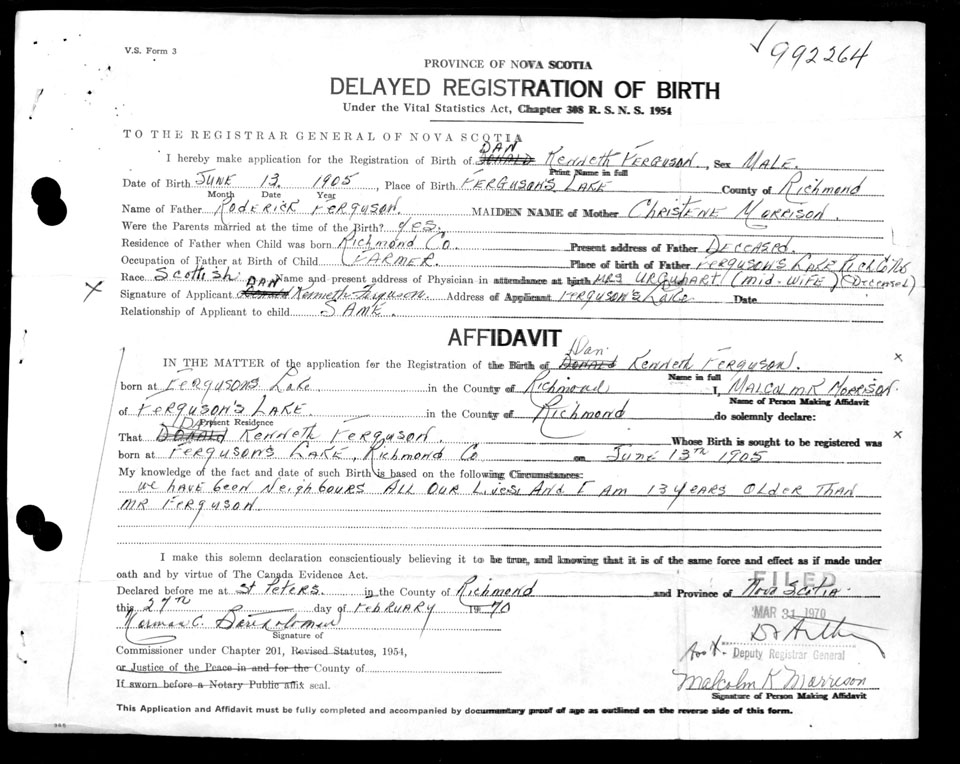 V.S. Form 3
992264
PROVINCE OF NOVA SCOTIA
DELAYED REGISTRATION OF BIRTH
Under the Vital Statistics Act, Chapter 308 R. S. N. S. 1954
TO THE REGISTRAR GENERAL OF NOVA SCOTIA
DAN
I hereby make application for the Registration of Birth of DONALD Kenneth Ferguson, Sex MALE.
Print Name in full
Date of Birth JUNE 13. 1905, Place of Birth FERGUSON'S LAKE County of Richmond
Month Date Year
Name of Father RODERICK FERGUSON. MAIDEN NAME of Mother Christene Morrison.
Were the Parents married at the time of the Birth? yes.
Residence of Father when Child was born Richmond Co. Present address of Father DECEASED.
Occupation of Father at Birth of Child FARMER. Place of birth of Father FERGUSON'S LAKE Rich Co NS
Race Scottish Name and present address of Physician in attendance at birth MRS URQUHART (mid-WIFE) (DECEASED)
DAN
Signature of Applicant Donald Kenneth Ferguson. Address of Applicant Ferguson's Lake Date
Relationship of Applicant to child SAME.
AFFIDAVIT
Dan
IN THE MATTER of the application for the Registration of the Birth of DONALD Kenneth Ferguson.
Name in full
born at Fergusons Lake in the County of Richmond I, MALCOLM K MORRISON.
Name of Person Making Affidavit
of FERGUSON'S LAKE. in the County of Richmond do solemnly declare:
Present Residence
DAN
That DONALD Kenneth Ferguson. Whose Birth is sought to be registered was
born at Ferguson's Lake, Richmond Co on June 13TH 1905
My knowledge of the fact and date of such Birth is based on the following Circumstances:
we have been Neighbours All Our Lives And I Am 13 years OLDER THAN
MR FERGUSON.
I make this solemn declaration conscientiously believing it to be true, and knowing that it is of the same force and effect as if made under
oath and by virtue of The Canada Evidence Act.
Declared before me at St Peters. in the County of Richmond and Province of Nova Scotia.
FILED
this 27TH day of February 1970
MAR 31 1970
Norman C. Bartholomew
Signature of
Deputy Registrar General
Commissioner under Chapter 201, Revised Statutes, 1954,
or Justice of the Peace in and for the County of
Malcolm K Morrison
If sworn before a Notary Public affix seal.
Signature of Person Making Affidavit
This Application and Affidavit must be fully completed and accompanied by documentary proof of age as outlined on the reverse side of this form.